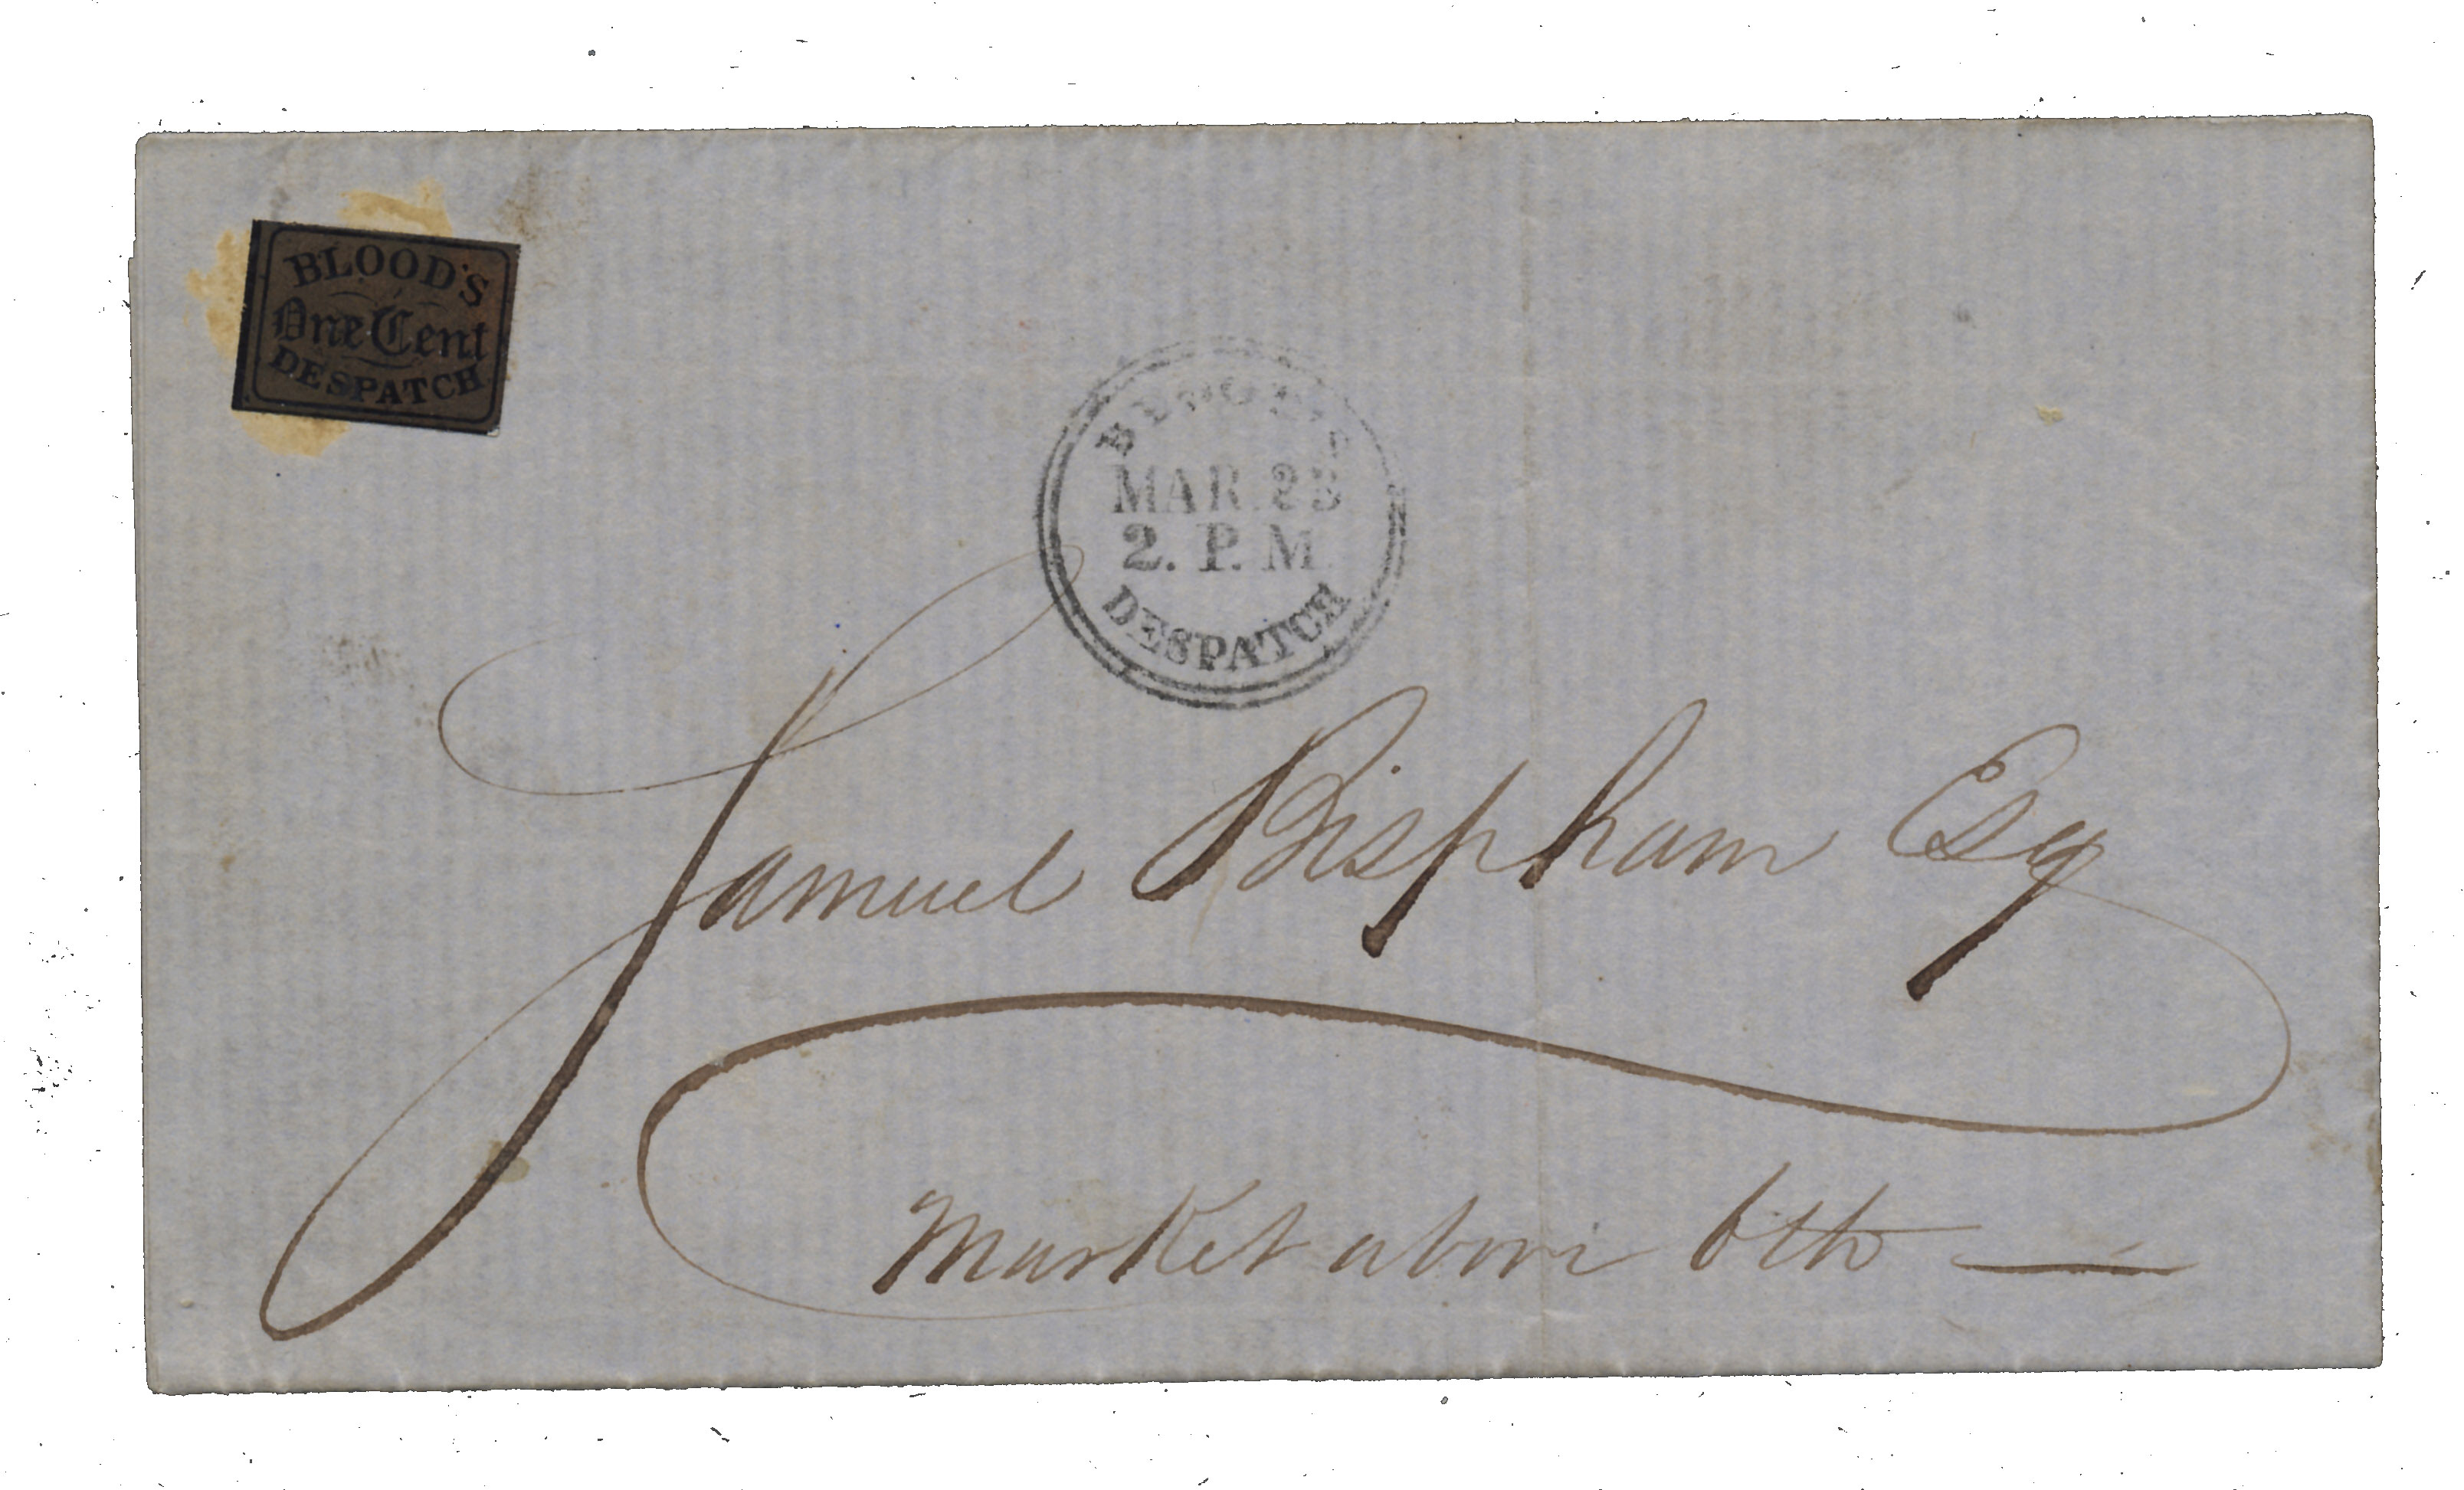 BLOOD'S
One Cent
DESPATCH
BLOOD'S
MAR.
2. P. M.
DESPATCH
Samuel Bispham Esq
Market above 6th